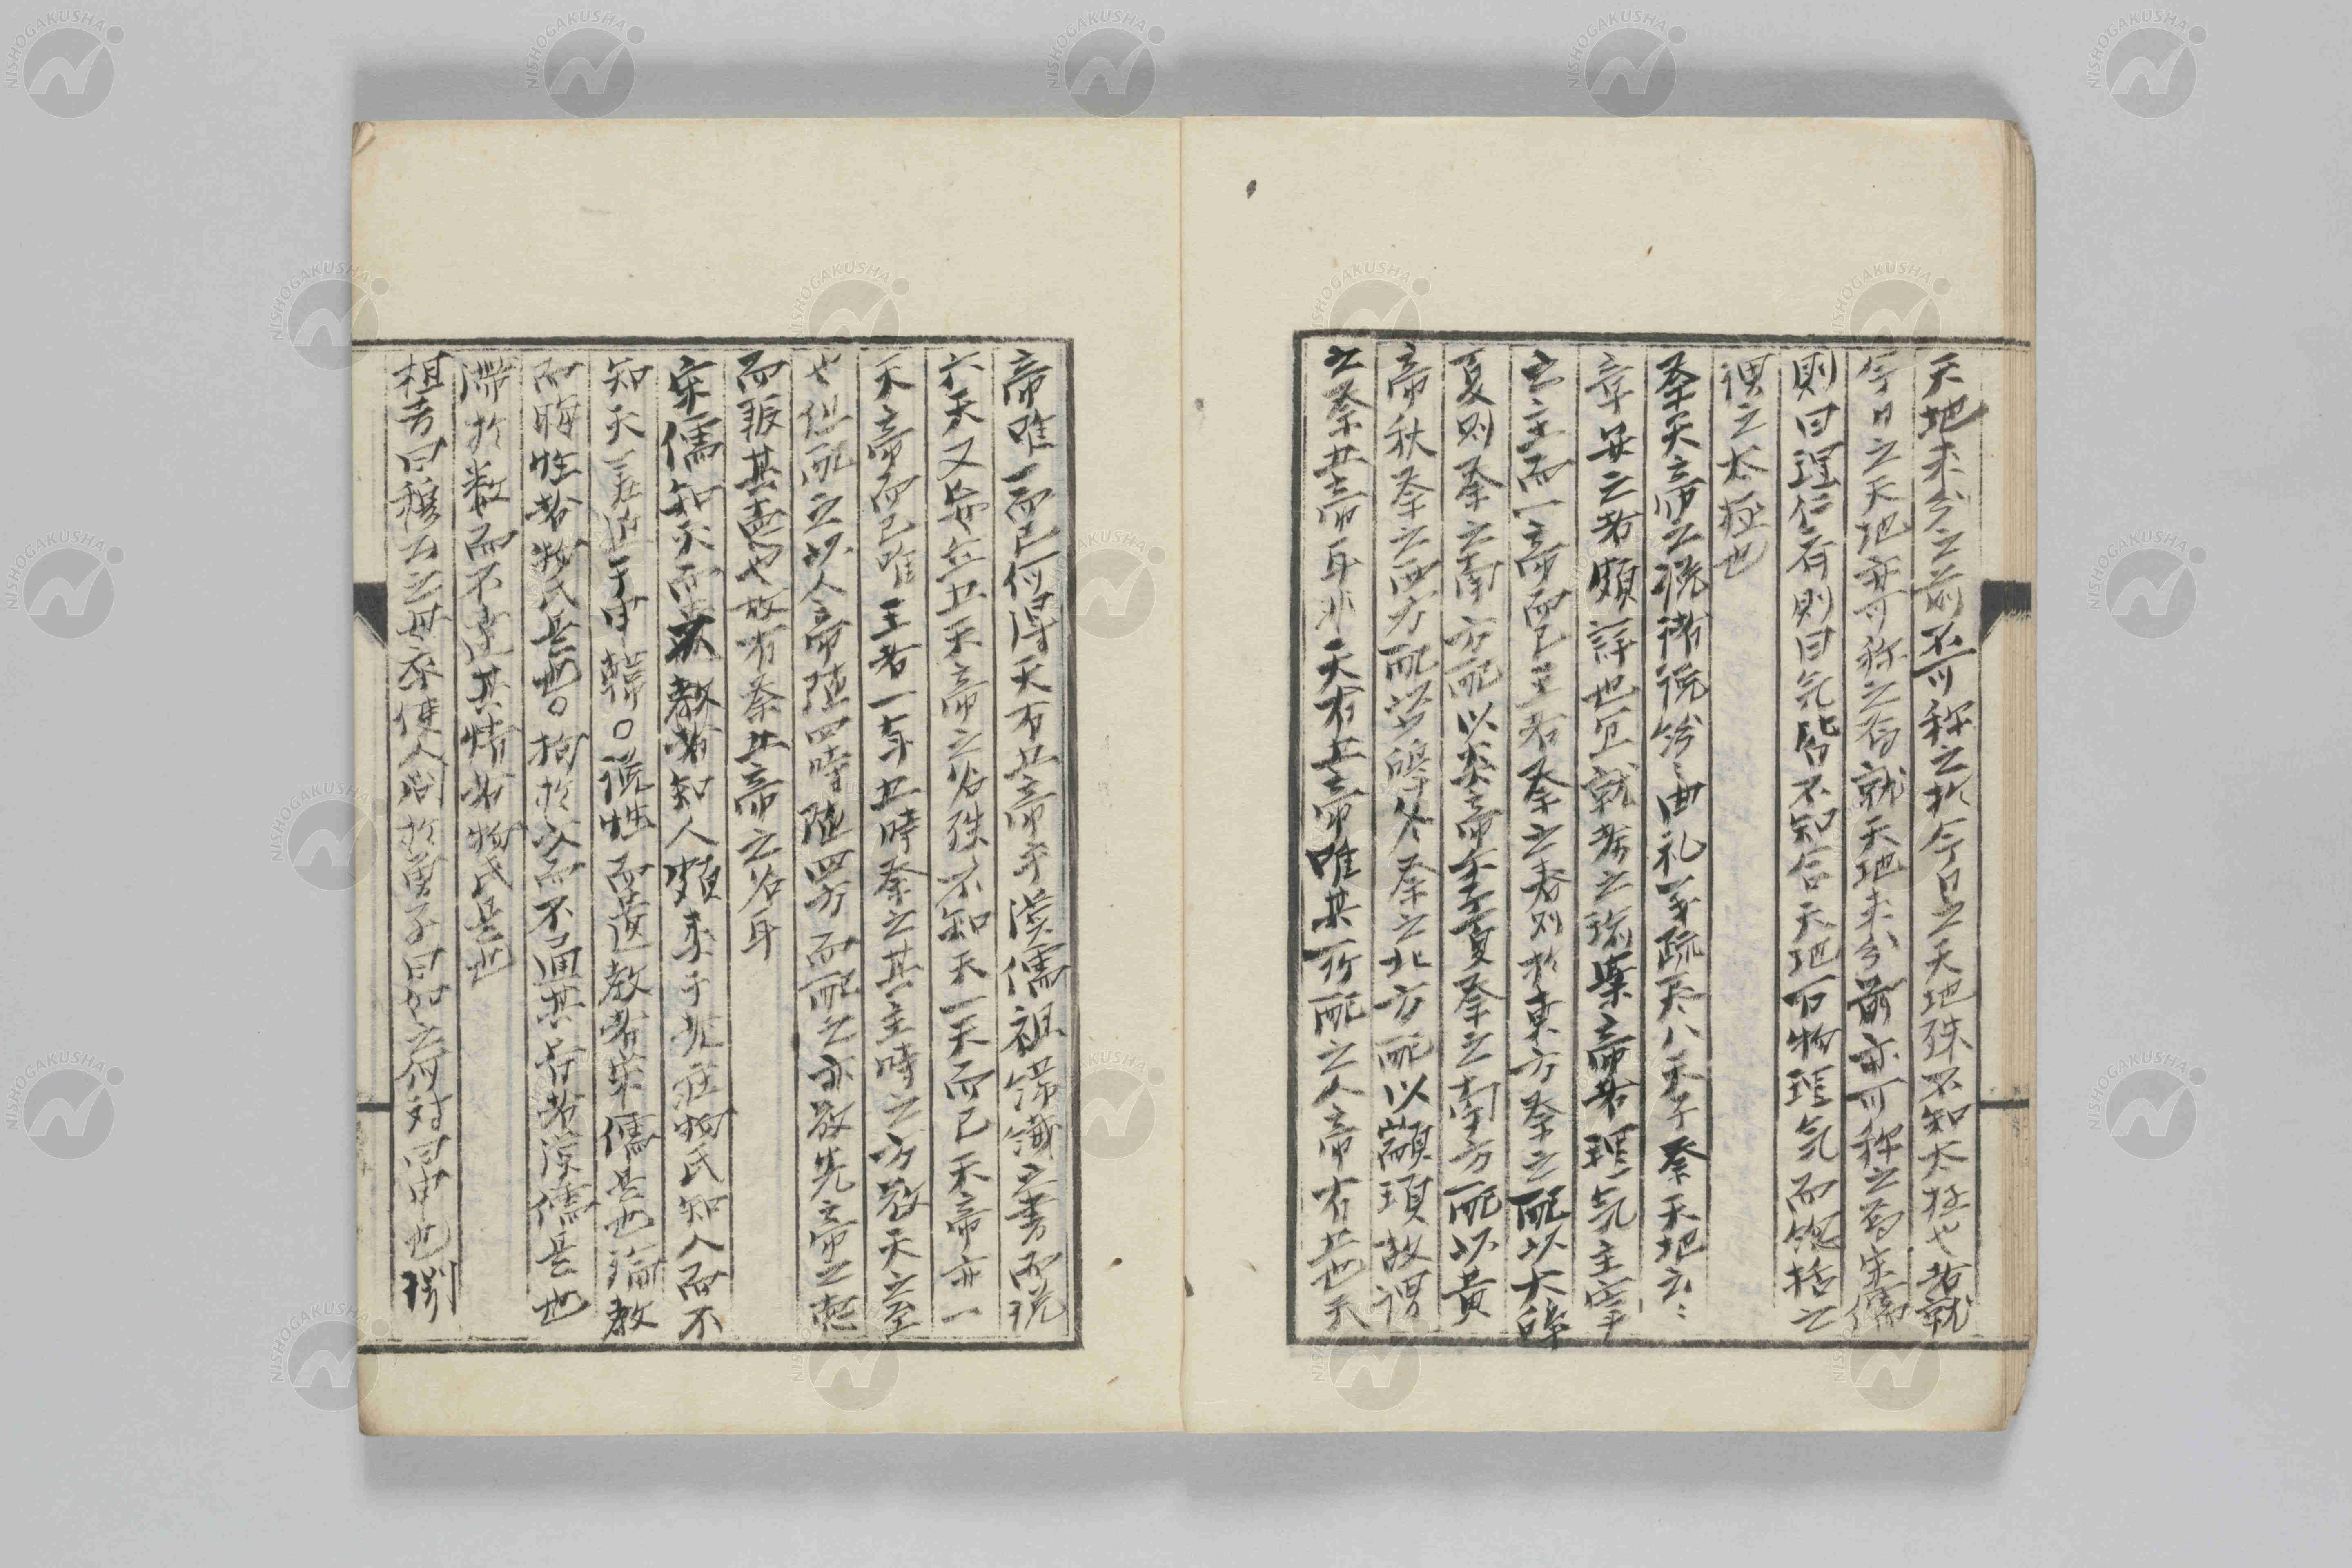 天地未分之前不可称之於今日之天地殊不知太極也若就
今日之天地亦可称之為就天地未分前亦可称之為宋儒
則曰理仁斎則曰気皆不知合天地万物理気而統括之
謂之太極也
祭天帝之説諸説紛々曲礼義疏天八天子祭天地云々
章安之者頗詳也宜就考之強案帝者理気主宰
之主而一帝而已王者祭之春則於東方祭之配以大皥
夏則祭之南方配以炎帝季夏祭之南方配以黄
帝秋祭之西方配以少皥冬祭之北方配以顓頊故謂
之祭五帝耳非天有五帝唯其所配之人帝有五也天
帝唯一而已何得天有五帝乎漢儒祖緯讖之書而説
六天又安立五天帝之名殊不知天一天而已天帝亦一
天帝而已唯王者一年五時祭之其主時之方敬天之至
也但配之以人帝陸四時陸四方而配之亦敬先帝之
而報其徳也故有祭五帝之名耳
宋儒知天而教者知人頗未于非荘物氏知人而不
知天差近于申韓○説性而遺教者宋儒是也論教
而晦性者物氏是也○拘於文而不通其旨者漢儒是也
滞於数而不達其情者物氏是也
相者曰穆公之母亦使人問於曽子曰如之何対曰申也聞